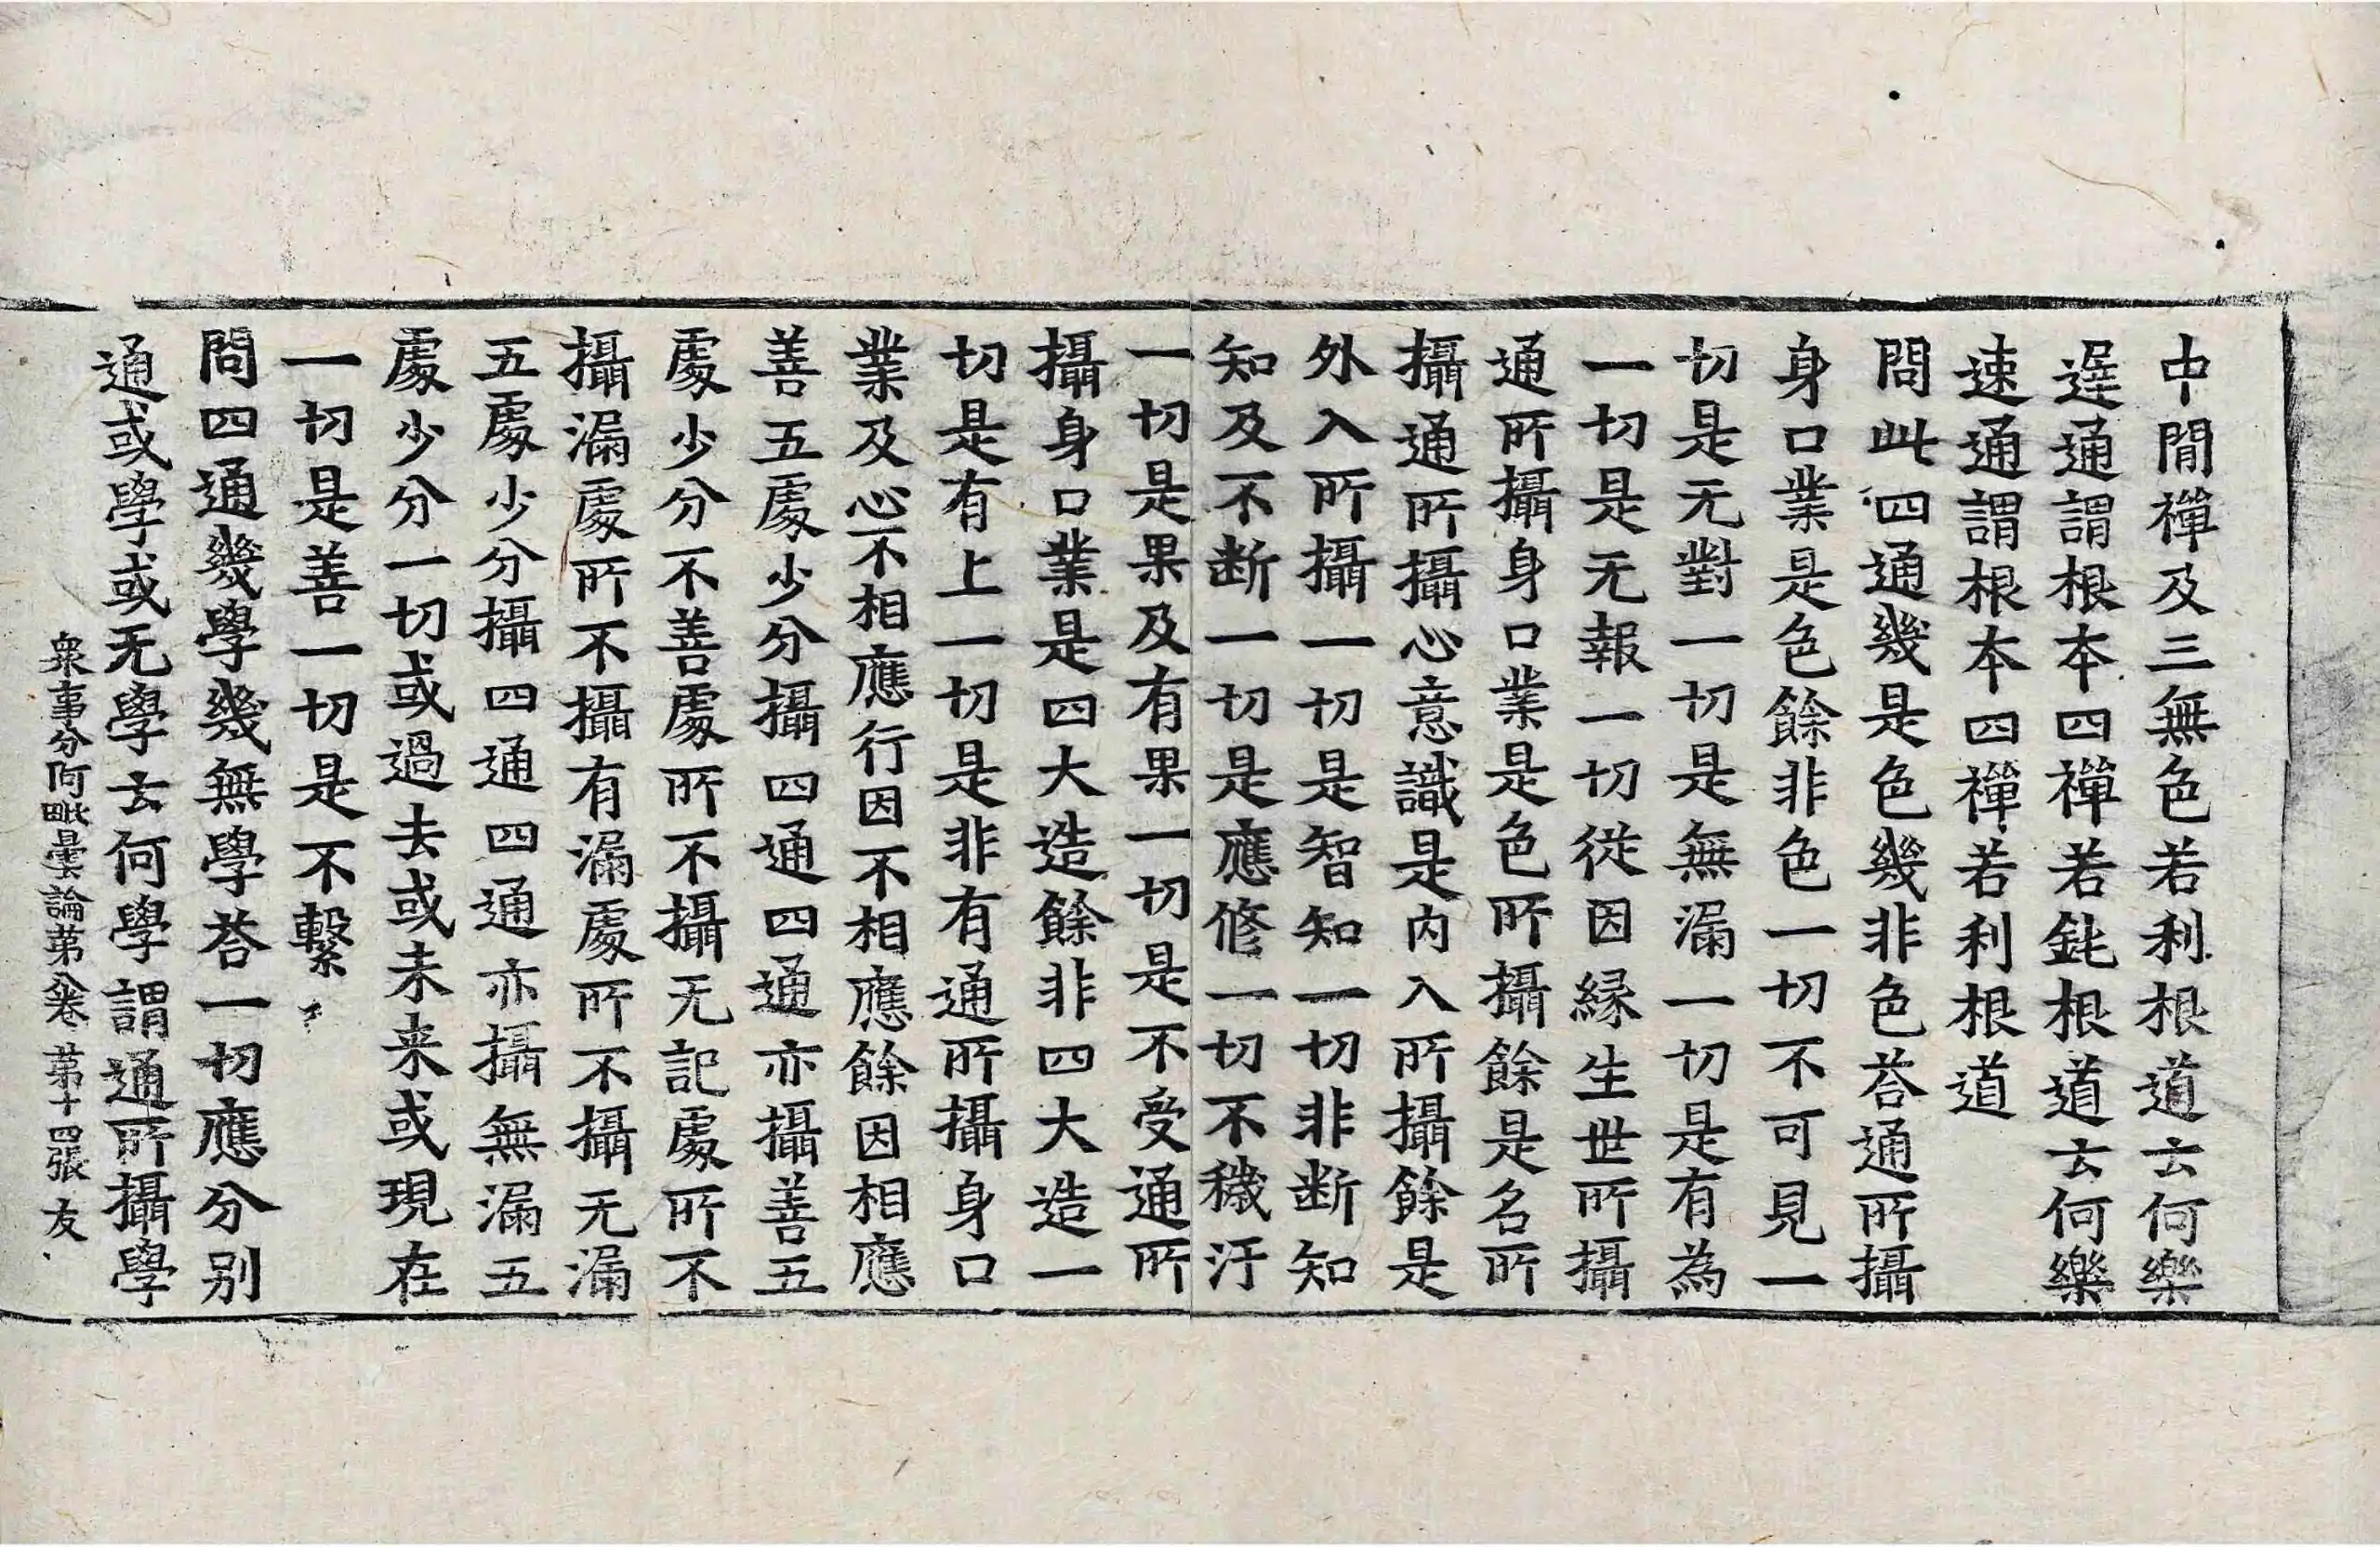 中閒禪及三無色若利根道云何樂
遟通謂根本四禪若鈍根道云何樂
速通謂根本四禪若利根道
問此四通幾是色幾非色荅通所攝
身口業是色餘非色一切不可見一
切是无對一切是無漏一切是有為
一切是无報一切從因緣生世所攝
通所攝身口業是色所攝餘是名所
攝通所攝心意識是內入所攝餘是
外入所攝一切是智知一切非断知
知及不断一切是應修一切不穢汙
一切是果及有果一切是不受通所
攝身口業是四大造餘非四大造一
切是有上一切是非有通所攝身口
業及心不相應行因不相應餘因相應
善五處少分攝四通四通亦攝善五
處少分不善處所不攝无記處所不
攝漏處所不攝有漏處所不攝无漏
五處少分攝四通四通亦攝無漏五
處少分一切或過去或未来或現在
一切是善一切是不繫
問四通幾學幾無學荅一切應分別
通或學或无學云何學謂通所攝學
衆事分阿毗曇論第八卷 第十四張 友